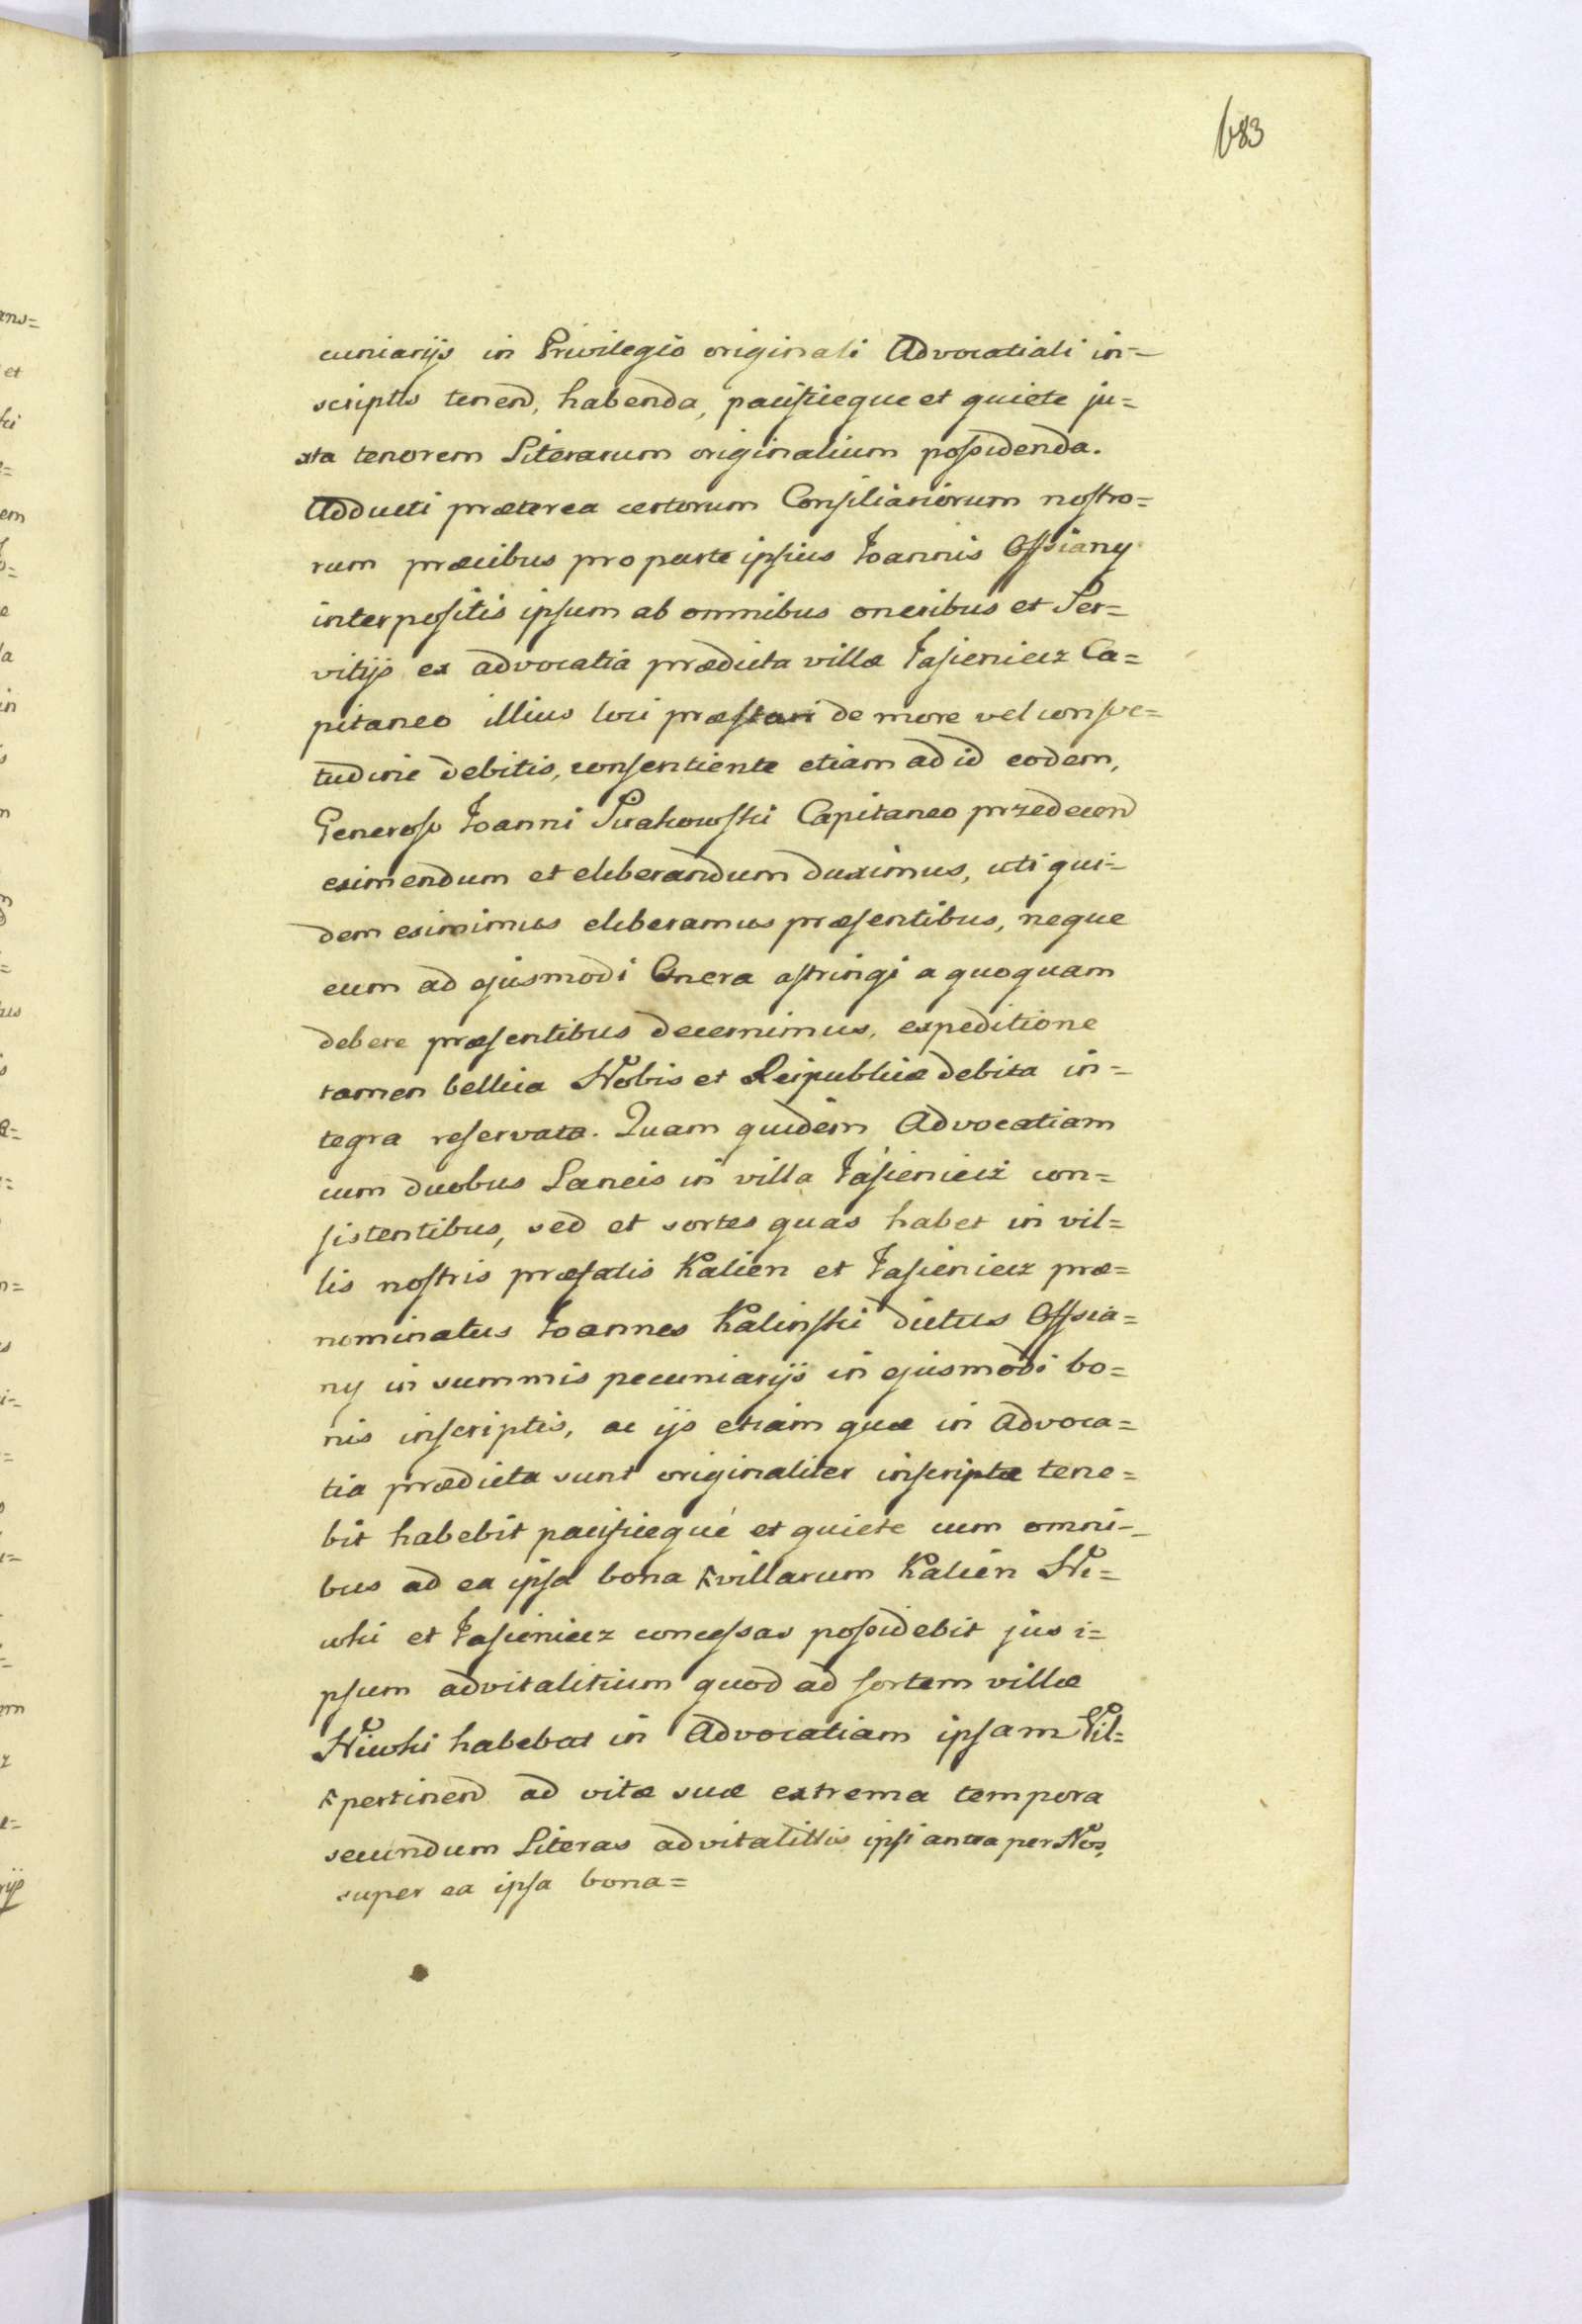 683
cuniarijs in Privilegio originali Advocatiali in=
scriptis tenend, habenda, pacificeque et quiete ju=
xta tenorem Literarum originalium possidenda.
Adducti præterea certorum Consiliariorum nostro=
rum præcibus pro parte ipsius Joannis Ossiany
interpositis ipsum ab omnibus oneribus et Ser=
vitijs ex advocatia prædicta villæ Jasieniecz Ca=
pitaneo illius loci præstari de more vel consve=
tudine debitis, consentiente etiam ad id eodem,
Generoso Joanni Pirakowski Capitaneo przedecen
eximendum et eliberandum duximus, uti qui=
dem eximimus eliberamus præsentibus, neque
eum ad ejusmodi Onera astringi a quoquam
debere præsentibus decernimus, expeditione
tamen bellica Nobis et Reipublicæ debita in=
tegra reservata. Quam quidem Advocatiam
cum duobus Laneis in villa Jasieniecz con=
sistentibus, sed et sortes quas habet in vil=
lis nostris præfatis Kalien et Jasieniecz præ=
nominatus Joannes Kalinski dictus Ossia=
ny in summis pecuniarijs in ejusmodi bo=
nis inscriptis, ac ijs etiam quæ in Advoca=
tia prædicta sunt originaliter inscriptæ tene=
bit habebit pacificequé et quiete cum omni=
bus ad ea ipsa bona villarum Kalien Ni=
wki et Jasieniecz concessas possidebit jus i=
psum advitalitium quod ad sortem villæ
Niwki habebat in Advocatiam ipsam Vil=
pertinend ad vitæ suæ extrema tempora
secundum Literas advitalittis ipsi antea per Nos,
super ea ipsa bona=